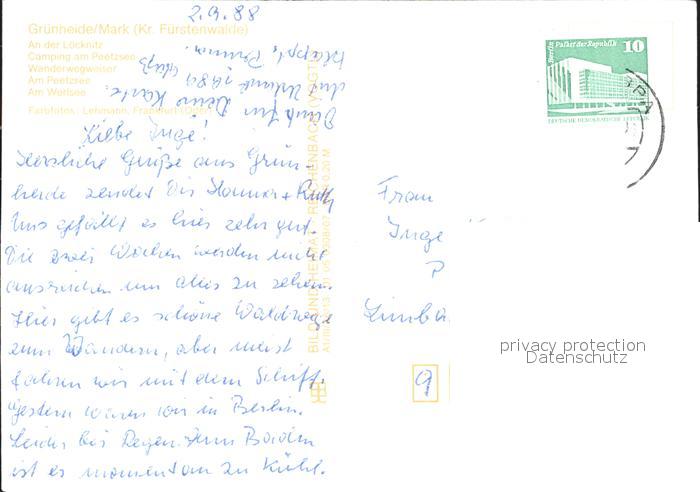 2.9.88
Grünheide/Mark (Kr. Fürstenwalde)
An der Löcknitz
Camping am Peetzsee
Wanderwegweiser
Am Peetzsee
Am Werlsee
Farbfotos: Lehmann, Frankfurt (Oder)
Dank für Deine Karte.
Liebe Inge!
Herzliche Grüße aus Grün-
heide sendet Dir Hanna + Ruth
Uns gefällt es hier sehr gut.
Die zwei Wochen werden nicht
ausreichen um alles zu sehen.
Hier gibt es schöne Waldwege
zum Wandern, aber meist
fahren wir mit dem Schiff.
Gestern waren wir in Berlin.
Leider bei Regen. Zum Baden
ist es momentan zu kühl.
BILD UND HEIMAT REICHENBACH (VOGTL)
Berlin Palast der Republik
10
DEUTSCHE DEMOKRATISCHE REPUBLIK
Frau
Inge
P
Limba
9
privacy protection
Datenschutz